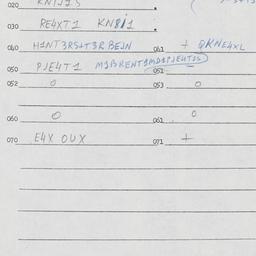 020 KNIJ1S
030 RE4XT1 KN8i1
040 H1NT3RSHT3R BEJN 041 + QKNE4XL
050 PJE4T1 M1BRENT1MD1PJE4TJS 051
052 0 053 0
060 0 061 0
070 E4X OUX 071 +